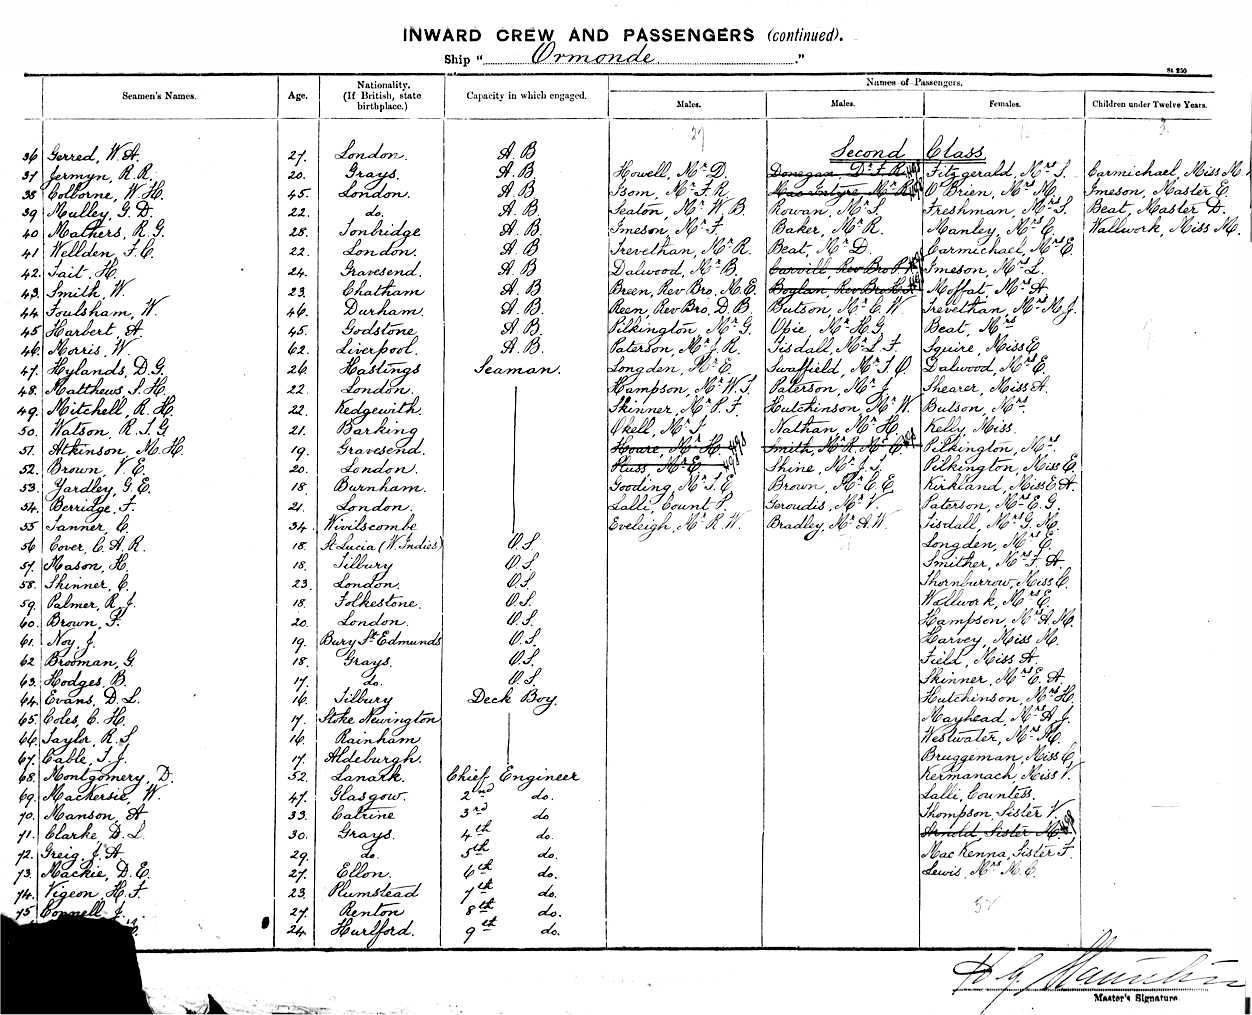 INWARD CREW AND PASSENGERS (continued).
Ship "Ormonde."
St 250
Seamen's Names. Age. Nationality. (If British, state birthplace.) Capacity in which engaged. Names of Passengers.
Males. Males. Females. Children under Twelve Years.
27
Second Class
36 Gerred, W. A. 27. London. A. B
37 Jermyn, R. R. 20. Grays. A. B Howell, Mr D. Donegan, Dr F. R. Fitzgerald, Mrs S. Carmichael, Miss M.
38 Colborne, W. H. 45. London. A. B Isom, Mr F. R. Mac Intyre, Mr R. O'Brien, Mrs M. Imeson, Master E.
39 Mulley, G. D. 22. do. A. B Seaton, Mr W. B. Rowan, Mr S. Freshman, Mrs S. Beat, Master D.
40 Mathers, R. G. 25. Tonbridge A. B. Imeson, Mr F. Baker, Mr R. Manley, Mrs E. Wallwork, Miss M.
41 Wellden, F. C. 22. London. A. B Trevethan, Mr R. Beat, Mr D. Carmichael, Mrs E.
42. Tait, H. 24. Gravesend. A. B Dalwood, Mr B. Carvill Rev Bro P. Imeson, Mrs L.
43. Smith, W. 23. Chatham A. B Breen, Rev Bro. M. E. Boylan, Rev Bro. Moffat, Mrs A.
44 Foulsham, W. 46. Durham. A. B. Reen, Rev Bro. D. B. Butson, Mr C. W. Trevethan, Mrs M. J.
45 Harbert, A. 45. Godstone A. B Pilkington, Mr G. Opie, Mr H. G. Beat, Mrs
46. Morris, W. 62. Liverpool. A. B. Paterson, Mr J. R. Tisdall, Mr L. F. Squire, Miss E.
47. Hylands, D. G. 26 Hastings Seaman. Longden, Mr E. Swaffield, Mr S. O. Dalwood, Mrs E.
48. Matthews S. H. 22. London. Hampson, Mr W. S. Paterson, Mr J. Shearer, Miss A.
49. Mitchell, R. H. 22. Kedgewith. Skinner, Mr P. F. Hutchinson, Mr W. Butson, Mrs.
50. Watson, R. S. G. 21. Barking Okell, Mr J. Nathan, Mr H. Kelly, Miss.
51. Atkinson, M. H. 19. Gravesend. Hoare, Mr H. 498 Smith, Mr R. Mc C. Pilkington, Mrs.
52. Brown, V. E. 20. London. Pluss, Mr E. 498 Shine, Mr J. J. Pilkington, Miss E.
53. Yardley, G. E. 18. Burnham. Gooding, Mr S. E. Brown, Mr C. E. Kirkland, Miss E. A.
54. Berridge, F. 21. London. Lalli, Count P. Geroudis, Mr V. Paterson, Mrs E. G.
55 Tanner, C. 34. Wivilscombe Eveleigh, Mr R. W. Bradley, Mr A. W. Tisdall, Mrs G. M.
56 Cover, C. A. R. 18. St Lucia (W. Indies) O. S. Longden, Mrs E.
57. Mason, H. 18. Tilbury O. S. Smither, Mrs F. A.
58. Skinner, C. 23. London. O. S. Thornburrow, Miss C.
59. Palmer, R. J. 18. Folkestone. O. S. Wallwork, Mrs E.
60. Brown, F. 20. London. O. S. Hampson, Mrs A. M.
61. Noy, J. 19. Bury St Edmunds O. S. Harvey, Miss M.
62 Brooman, G. 18. Grays. O. S. Field, Miss A.
63. Hodges, B. 17. do. O. S. Skinner, Mrs E. A.
64. Evans, D. L. 16. Tilbury Deck Boy. Hutchinson, Mrs H.
65. Coles, C. H. 17. Stoke Newington Mayhead, Mrs A. J.
66. Taylor, R. S. 16. Rainham Westwater, Mrs M.
67. Cable, S. J. 17. Aldeburgh. Bruggeman, Miss C.
68. Montgomery, D. 52. Lanark. Chief Engineer Kermanach, Miss V.
69. Mackersie, W. 47. Glasgow. 2nd do. Lalli, Countess.
70. Manson, A. 33. Catrine 3rd do Thompson, Sister V.
71. Clarke, D. L. 30. Grays. 4th do. Arnold, Sister M.
72. Greig, J. A. 29. do. 5th do. Mac Kenna, Sister F.
73. Mackie, D. E. 27. Ellon. 6th do. Lewis, Mrs M. C.
74. Vigeon, H. F. 23. Plumstead 7th do.
75 Connell, J. 27. Renton 8th do.
24 Hurlford. 9th do.
Master's Signature